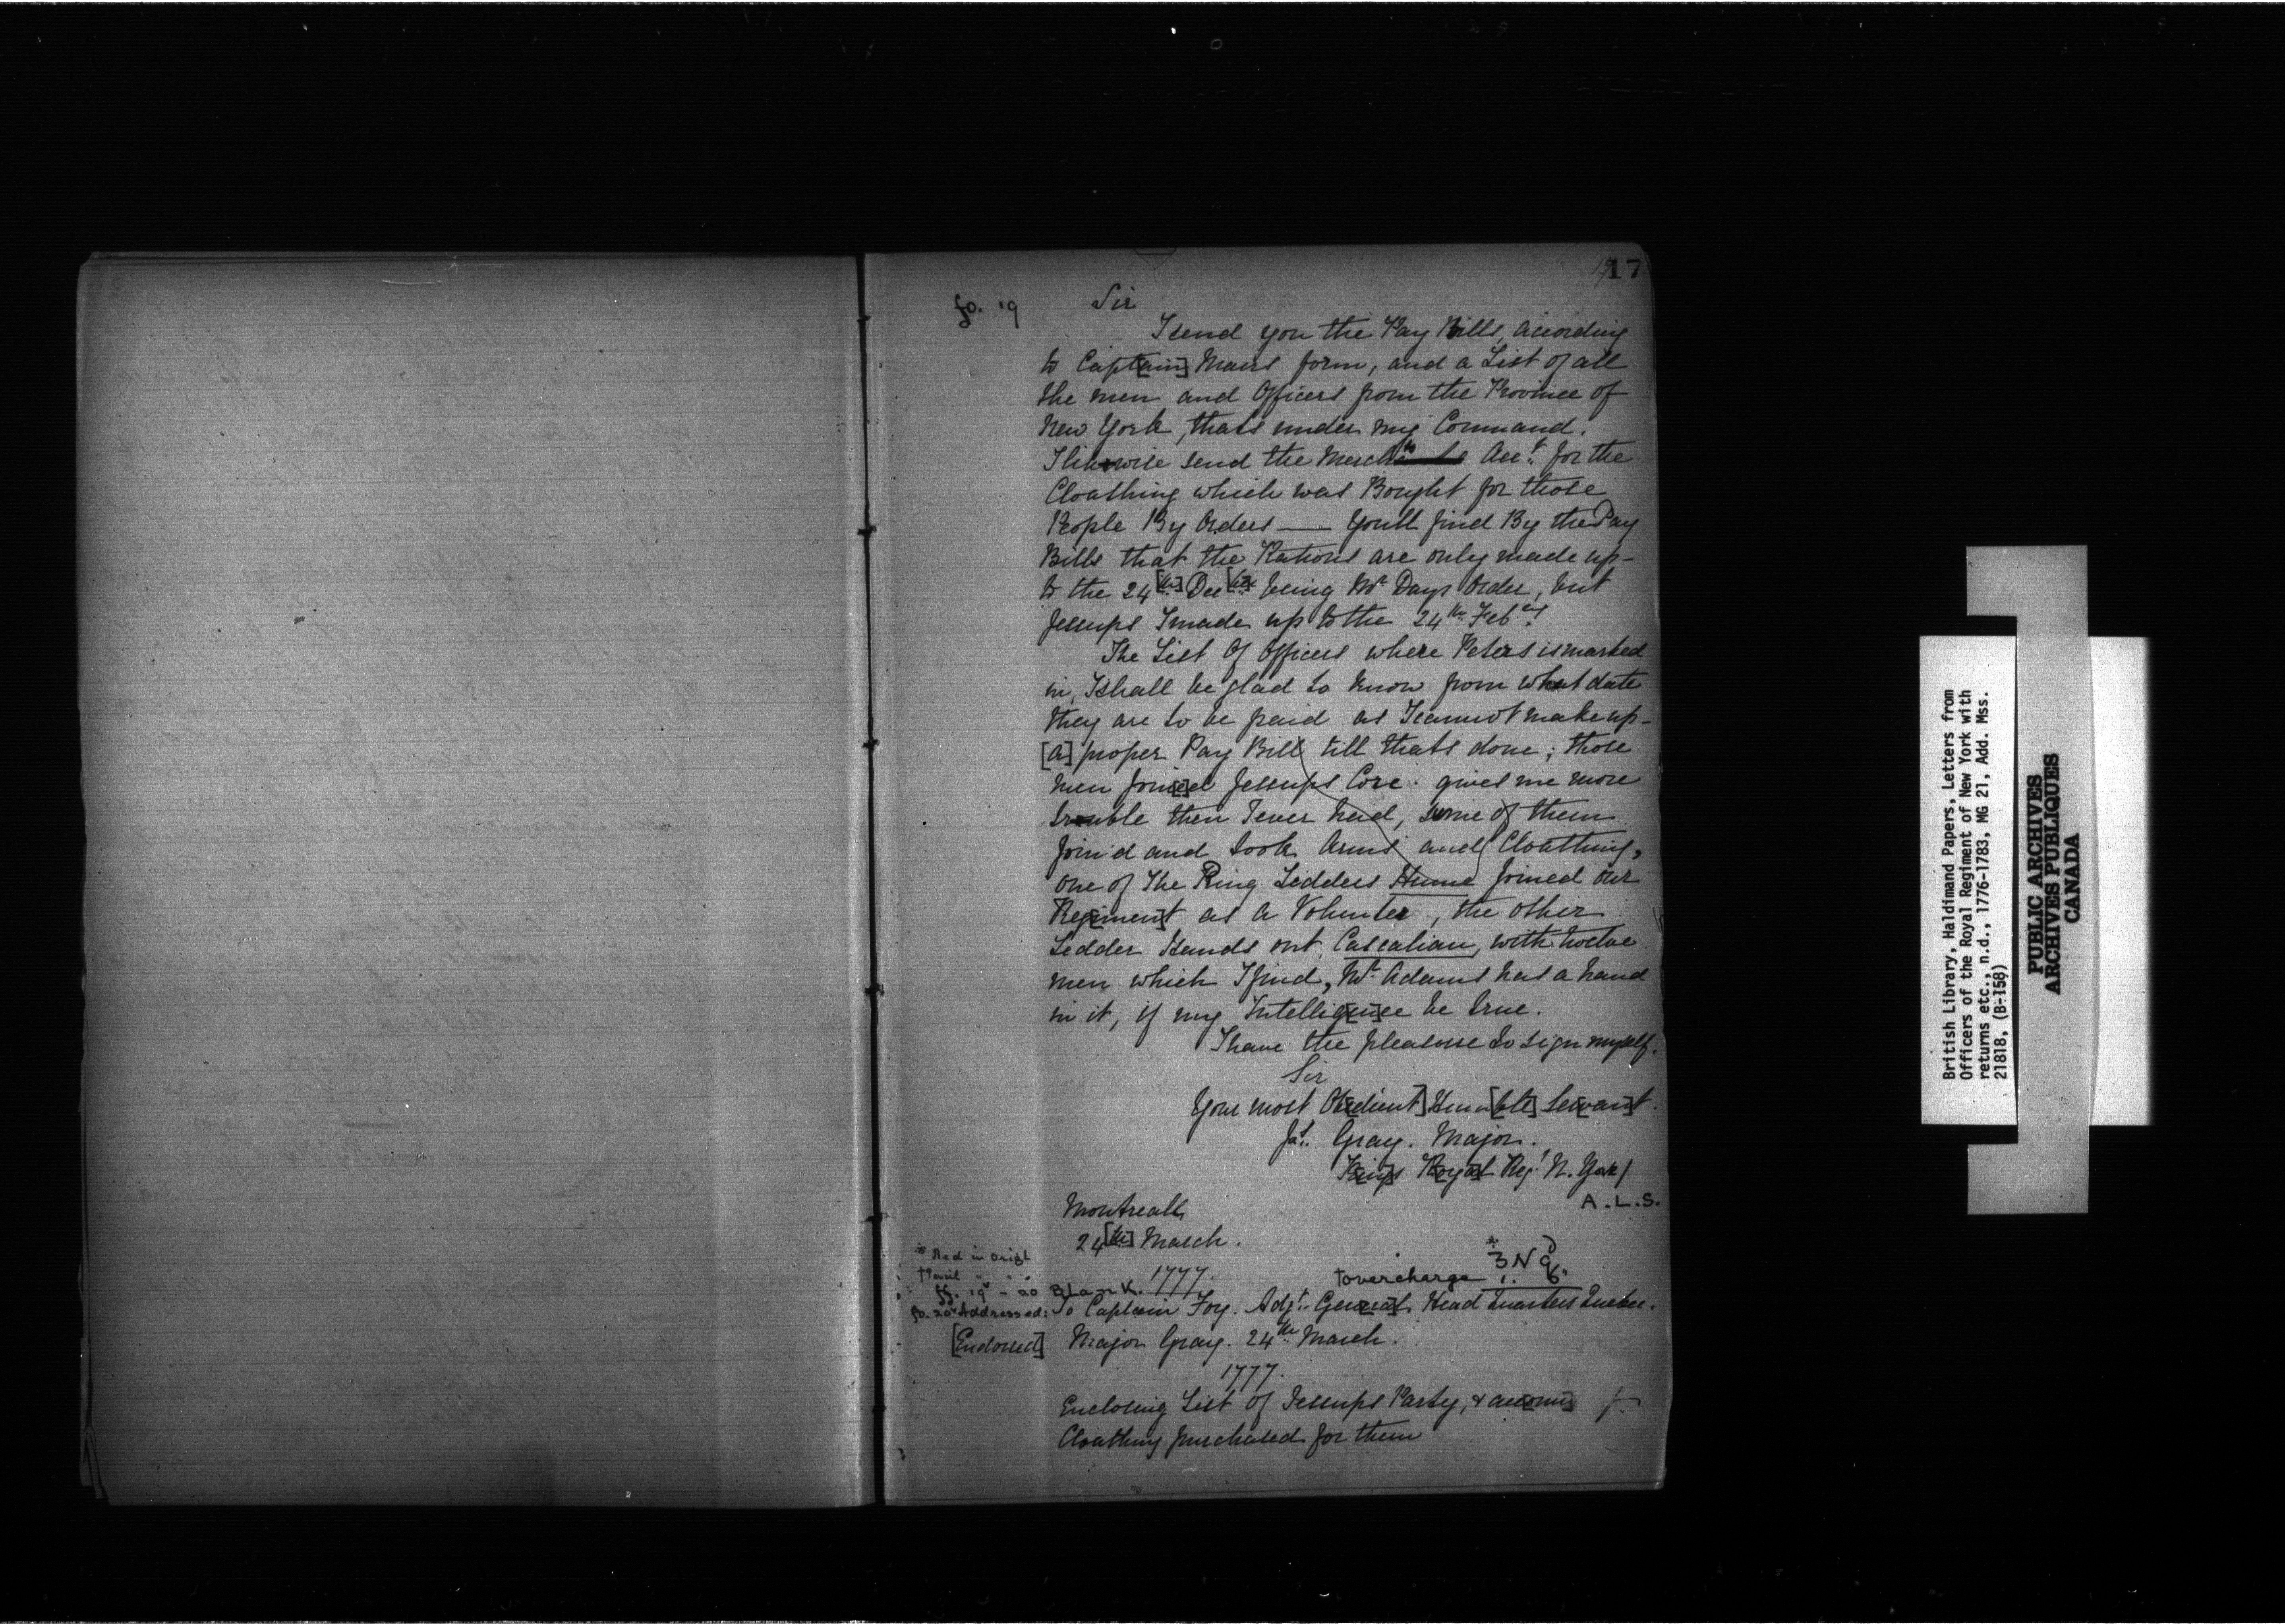 17
fo. 19
Sir
I send you the Pay Bills, according
to Capt[ain] Maurs form, and a List of all
the men and Officers from the Province of
New York, thats under my Command.
I likewise send the Mercht Acct. for the
Cloathing which was Bought for those
People By Orders — Youll find By the Pay
Bills that the Rations are only made up-
to the 24[th] Dec[br] being Mr Days Order, but
Jessups I made up to the 24th Febry.
The List Of Officers where Peters is marked
in, I shall be glad to know from what date
they are to be paid as I cannot make up-
[a] proper Pay Bill till thats done; those
men Join[e]d Jessups Core gives me more
trouble then I ever had, some of them
Join'd and took Arms and Cloathing,
one of The Ring Ledders Hume Joined our
Reg[imen]t as a Volunter, the other
Ledder Stands out Cascalian, with twelve
men which I find, Mr Adams has a hand
in it, if my Intellig[en]ce be true.
I have the pleasure to sign myself.
Sir
Your most Ob[edient] Hum[ble] Se[rvan]t.
Jas. Gray. Major.
K[ing]s R[oya]l Regt N. York/
A.L.S.
Montreall
24[th] March.
1777.
* Red in Origl
† Pencil " "
* 3 N 9
† overcharge 1. 6.
ff. 19v - 20 Blank.
fo. 20v Addressed: To Captain Foy. Adjt. Gen[era]l Head Quarters Quebec.
[Endorsed] Major Gray. 24th March.
1777.
Enclosing List of Jessups Party, & acc[oun]
Cloathing purchased for them
British Library, Haldimand Papers, Letters from
Officers of the Royal Regiment of New York with
returns etc., n.d., 1776-1783, MG 21, Add. Mss.
21818, (B-158)
PUBLIC ARCHIVES
ARCHIVES PUBLIQUES
CANADA